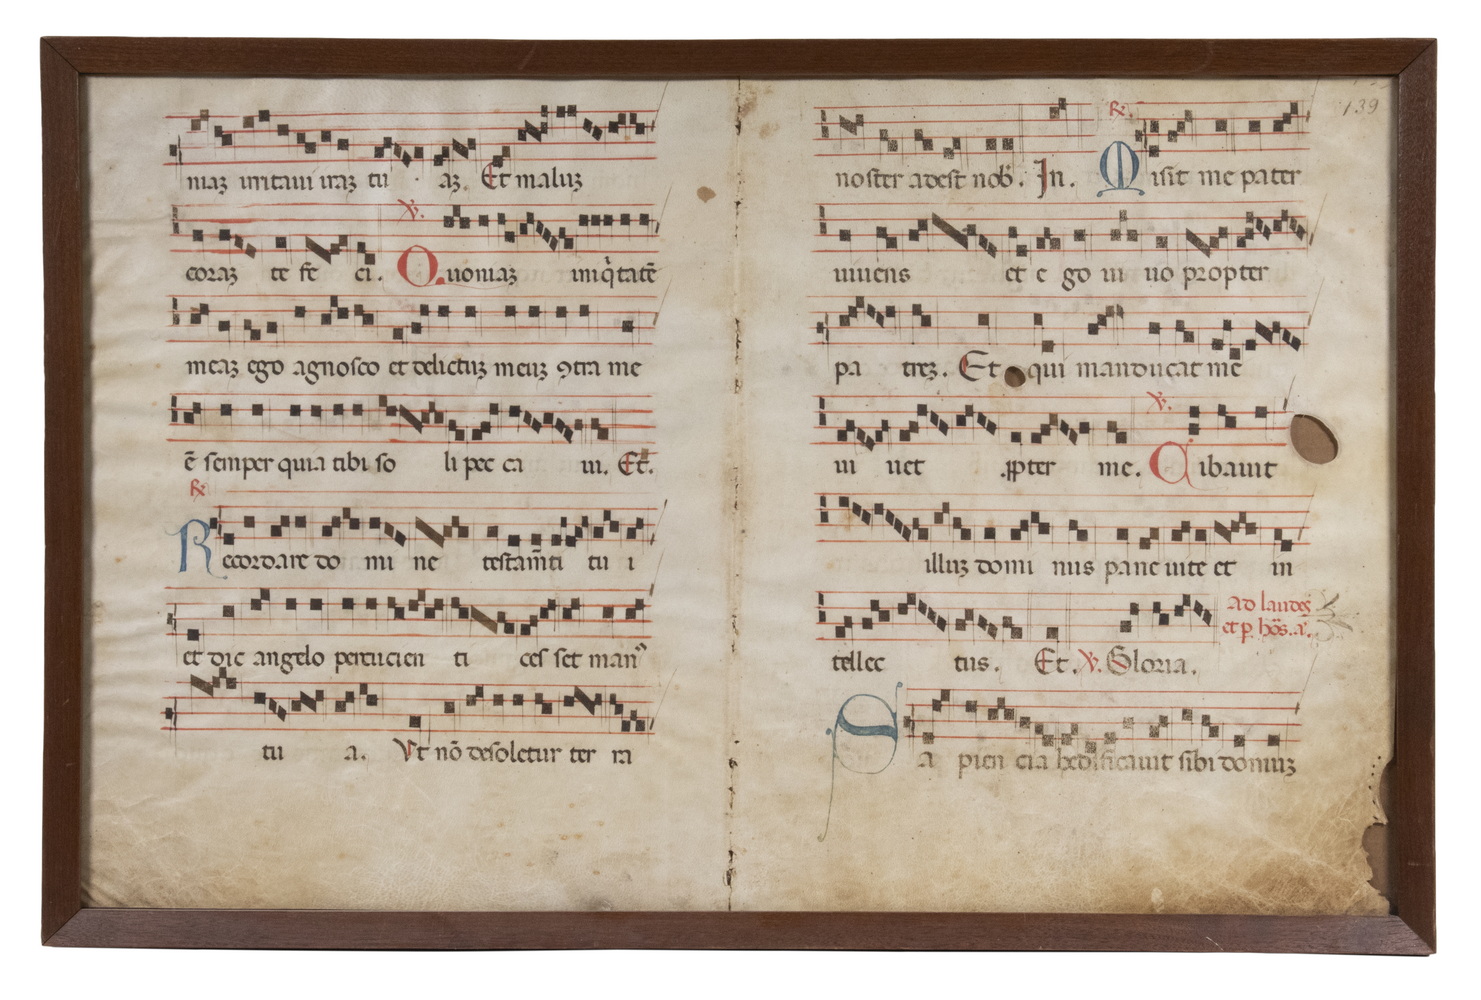 niaꝫ irritaui iraꝫ tu aꝫ. Et maluꝫ
coraꝫ te fe ci. ℣. Quoniaꝫ iniq̇tatē
meaꝫ ego agnosco et delictuꝫ meuꝫ ꝯtra me
ē semper quia tibi so li pec ca ui. Et.
℟
Recordare do mi ne testam̄ti tu i
et dic angelo percucien ti ces set man⁹
tu a. Vt nō desoletur ter ra
139
noster adest nob̄. In. ℟. Misit me pater
uiuens et e go ui uo propter
pa treꝫ. Et qui manducat me
ui uet ꝓpter me. ℣. Cibauit
illuꝫ domi nus pane uite et in
tellec tus. Et. ℣. Gloria. ad laudes
et p. hōs. a.
Sa pien cia hedificauit sibi domuꝫ